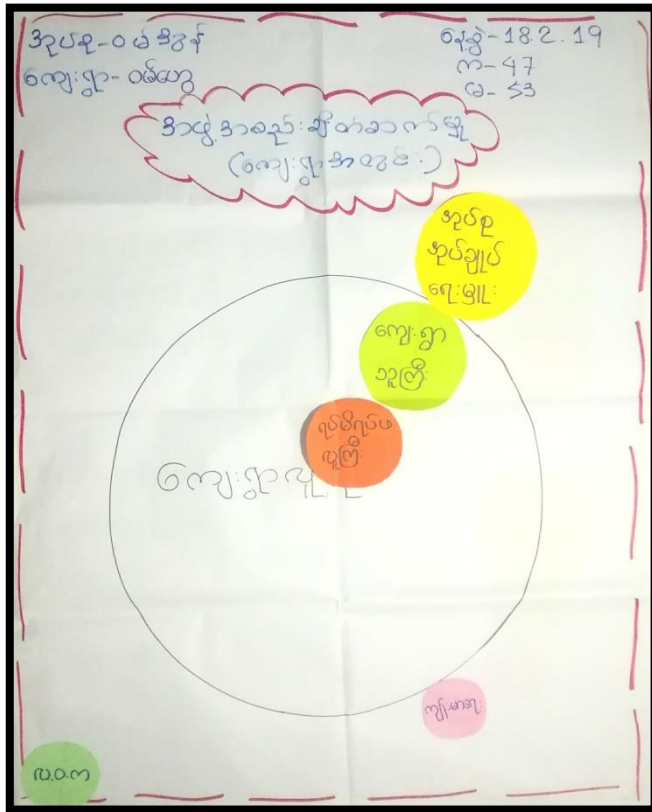 အုပ်စု-ဝမ်အွန်
ကျေးရွာ-ဝမ်ဟွေ
နေ့စွဲ-18.2.19
က-47
မ-53
အဖွဲ့အစည်းချိတ်ဆက်မှု
(ကျေးရွာအတွင်း)
အုပ်စု
အုပ်ချုပ်
ရေးမှူး
ကျေးရွာ
သူကြီး
ရပ်မိရပ်ဖ
လူကြီး
ကျေးရွာလူ
ကျန်းမာရေး
လ.ဝ.က